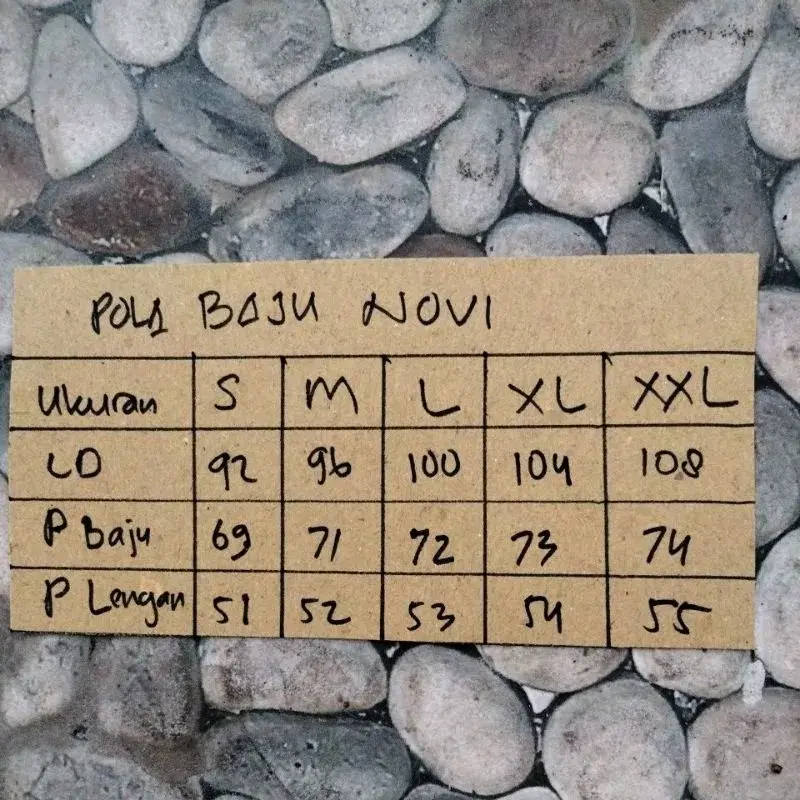 POLA BAJU NOVI
Ukuran S M L XL XXL
LD 92 96 100 104 108
P Baju 69 71 72 73 74
P Lengan 51 52 53 54 55